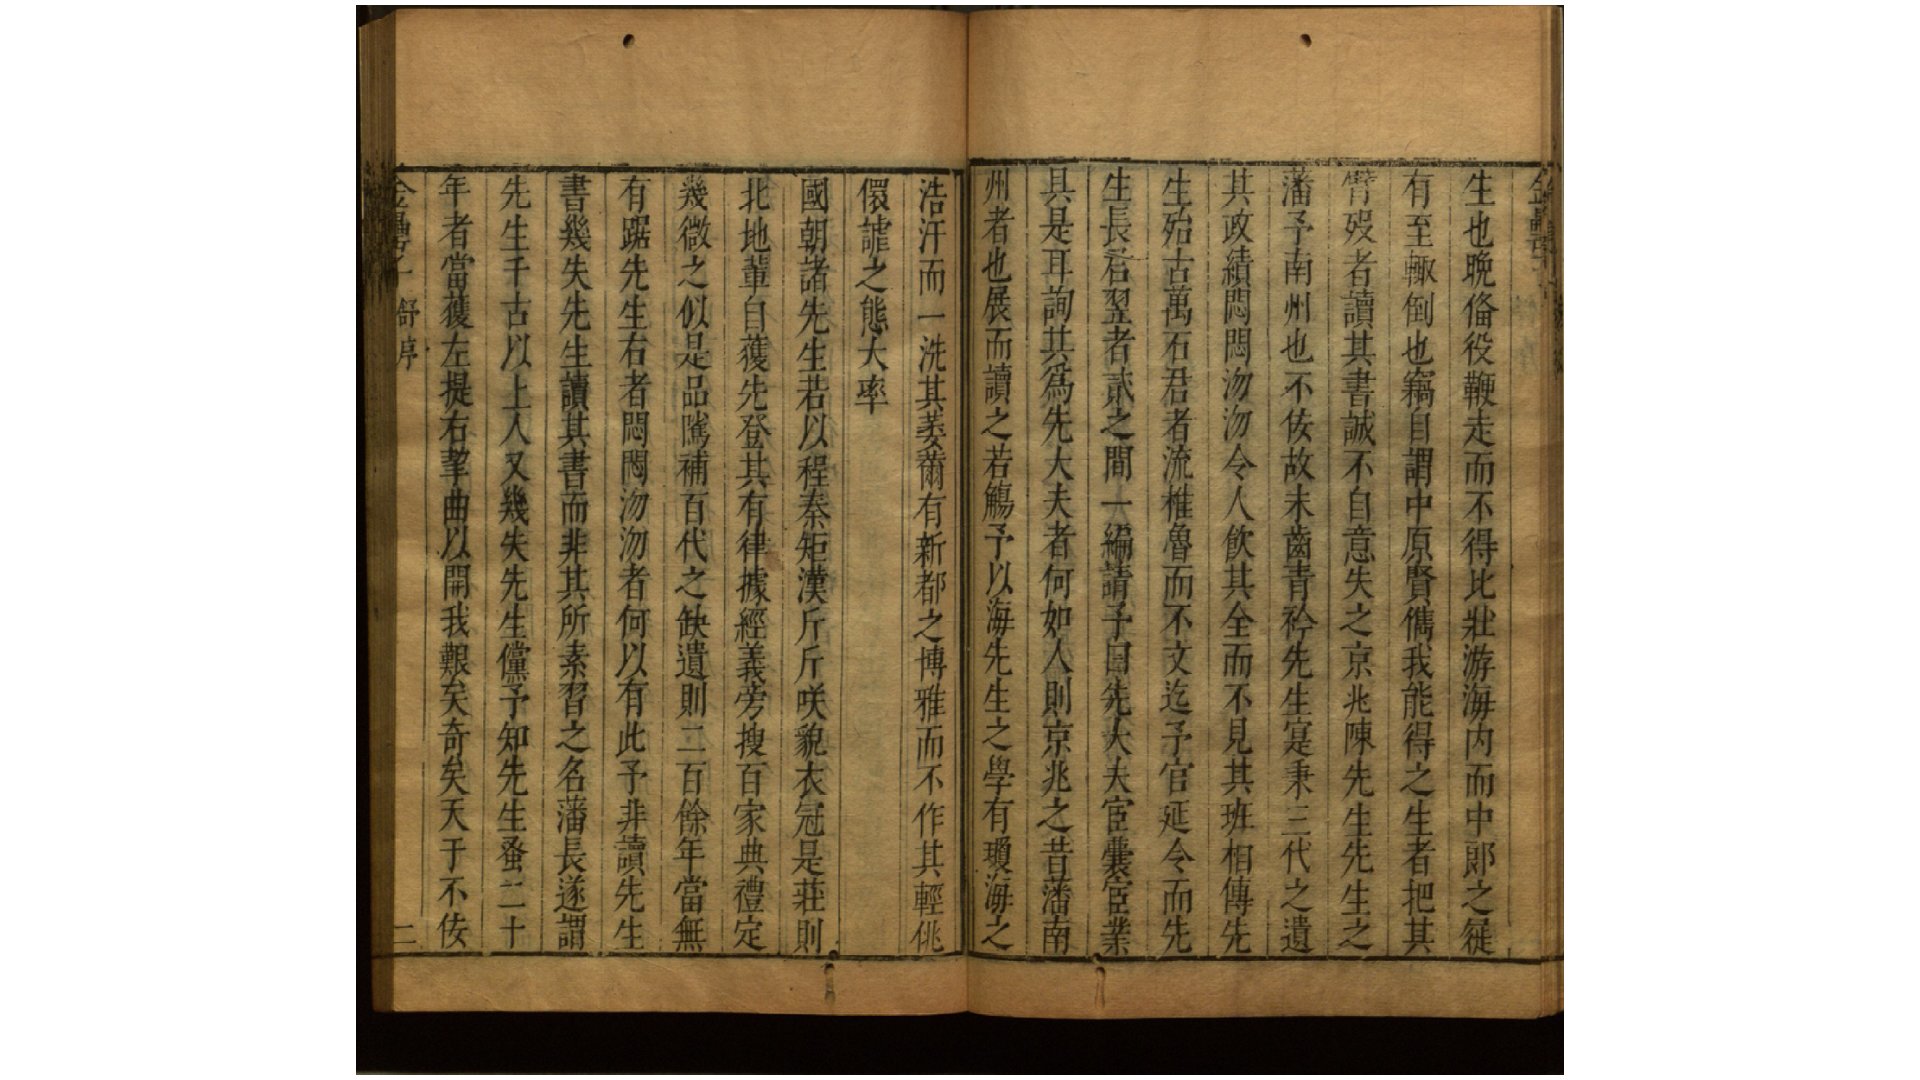 生也晚俻役鞭走而不得比壯游海内而中郎之徙
有至輙倒也竊自謂中原賢儁我能得之生者把其
臂歿者讀其書誠不自意失之京兆陳先生先生之
藩予南州也不佞故未齒青衿先生寔秉三代之遺
其政績悶悶沕沕令人飲其全而不見其班相傳先
生殆古萬石君者流椎魯而不文迄予官延令而先
生長君翌者貳之間一編請予曰先大夫宦橐宦業
具是耳詢其為先大夫者何如人則京兆之昔藩南
州者也展而讀之若觴予以海先生之學有瓊海之
浩汗而一洗其萎薾有新都之博雅而不作其輕佻
儇謔之態大率
國朝諸先生若以程秦矩漢斤斤咲貌衣冠是莊則
北地輩自蒦先登其有律據經義旁搜百家典禮定
幾微之似是品隲補百代之缺遺則二百餘年當無
有踞先生右者悶悶沕沕者何以有此予非讀先生
書幾失先生讀其書而非其所素習之名藩長遂謂
先生千古以上人又幾失先生儻予知先生蚤二十
年者當蒦左提右挈曲以開我艱矣奇矣天于不佞
金罍子 舒序
二